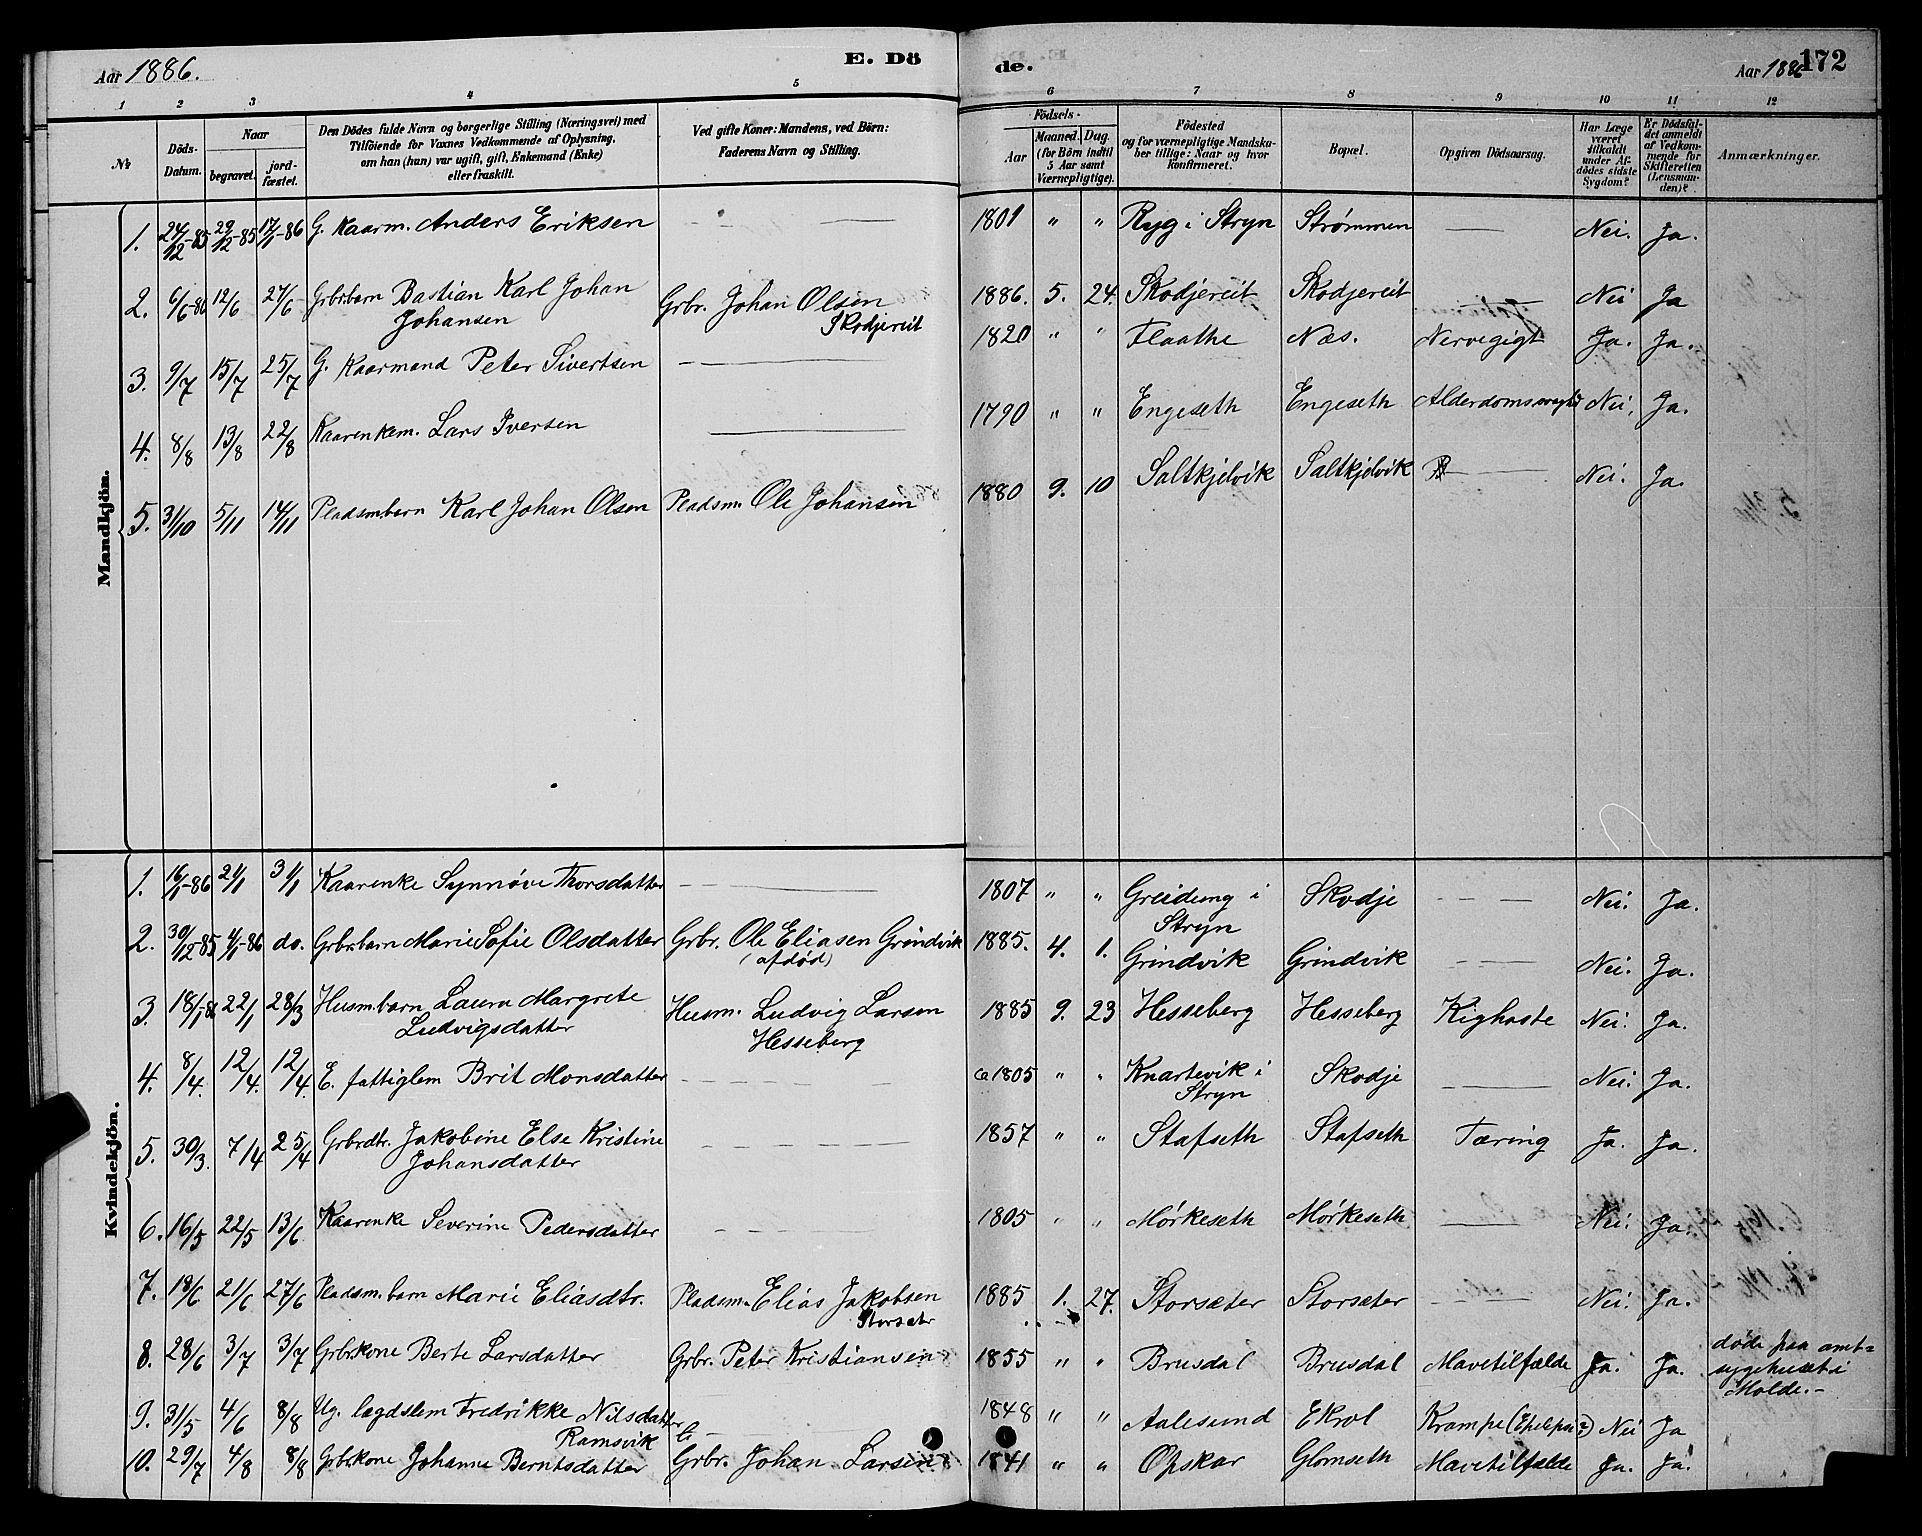 Aar 1886. E. Dö
1 2 3 4 5
№ Döds-Datum. Naar begravet. jord-fæstet. Den Dödes fulde Navn og borgerlige Stilling (Næringsvei) med Tilföiende for Voxnes Vedkommende af Oplysning, om han (hun) var ugift, gift, Enkemand (Enke) eller fraskilt. Ved gifte Koner: Mandens, ved Börn: Faderens Navn og Stilling.
Mandkjön.
1. 24/12-85 29/12-85 17/1-86 G. Kaarm. Anders Eriksen — —
2. 6/6-86 12/6 27/6 Grbrbarn Bastian Karl Johan Grbr. Johan Olsen
Johansen Skodjereit
3. 9/7 15/7 25/7 G. Kaarmand Peter Sivertsen — —
4. 8/8 13/8 22/8 Kaarenkem. Lars Iversen —
5. 31/10 5/11 14/11 Pladsm.barn Karl Johan Olsen Pladsm. Ole Johansen
Kvindekjön.
1. 16/1-86 21/1 31/1 Kaarenke Synnøve Thorsdatter — —
2. 30/12-85 4/1-86 do. Grbrbarn Marie Sofie Olsdatter Grbr. Ole Eliasen Grindvik
(afdød)
3. 18/1-86 22/1 28/3 Husm.barn Laura Margrete Husm. Ludvig Larsen
Ludvigsdatter Hesseberg
4. 8/4. 12/4. 12/4. E. fattiglem Brit Monsdatter — —
5. 30/3. 7/4 25/4 Grbrdtr. Jakobine Else Kristine — —
Johansdatter
6. 16/5 22/5 13/6 Kaarenke Severine Pedersdatter — —
7. 19/6 21/6 27/6 Pladsm.barn Marie Eliasdtr. Pladsm. Elias Jakobsen
Storsæter
8. 28/6 3/7 3/7 Grbrkone Berte Larsdatter Grbr. Peter Kristiansen
9. 31/5 4/6 8/8 Ug. lægdslem Fredrikke Nilsdatter
Ramsvik
10. 29/7 4/8 8/8 Grbrkone Johanne Berntsdatter Grbr. Johan Larsen
de. Aar 1886 172
6 7 8 9 10 11 12
Födsels- Aar Maaned. Dag. (for Börn indtil 5 Aar samt Værnepligtige). Födested og for værnepligtige Mandskaber tillige: Naar og hvor konfirmeret. Bopæl. Opgiven Dödsaarsag. Har Læge været tilkaldt under Afdödes sidste Sygdom? Er Dödsfaldet anmeldt af Vedkommende for Skifteretten (Lensmanden)? Anmærkninger.
1801 " " Ryg i Stryn Strømmen — Nei. Ja.
1886. 5. 24. Skodjereit Skodjereit — Nei Ja
1820 " " Flaathe Næs. Nervegigt Ja. Ja.
1790 " " Engeseth Engeseth Alderdomssvaghd Nei. Ja.
1880 9. 10 Saltkjelvik Saltkjelvik — Nei. Ja.
1807 " " Greidung i Skodje — — Nei. Ja.
Stryn
1885. 4. 1. Grindvik Grindvik — — Nei. Ja.
1885 9. 23 Hesseberg Hesseberg Kighoste Nei. Ja.
ca 1805 " " Knartevik i Skodje — Nei. Ja.
Stryn
1857 " " Stafseth Stafseth Tæring Ja. Ja.
1805 " " Mørkeseth Mørkeseth — Nei. Ja.
1885 1. 27. Storsæter Storsæter — — Nei. Ja.
1855 " " Brusdal Brusdal Mavetilfælde Ja. Ja. døde paa amt=
sygehuset i
Molde.-
1848 " " Aalesund Ekrol Krampe (Epelpsi?) Nei Ja
1841 " " Opskar Glomseth Mavetilfælde Ja. Ja.